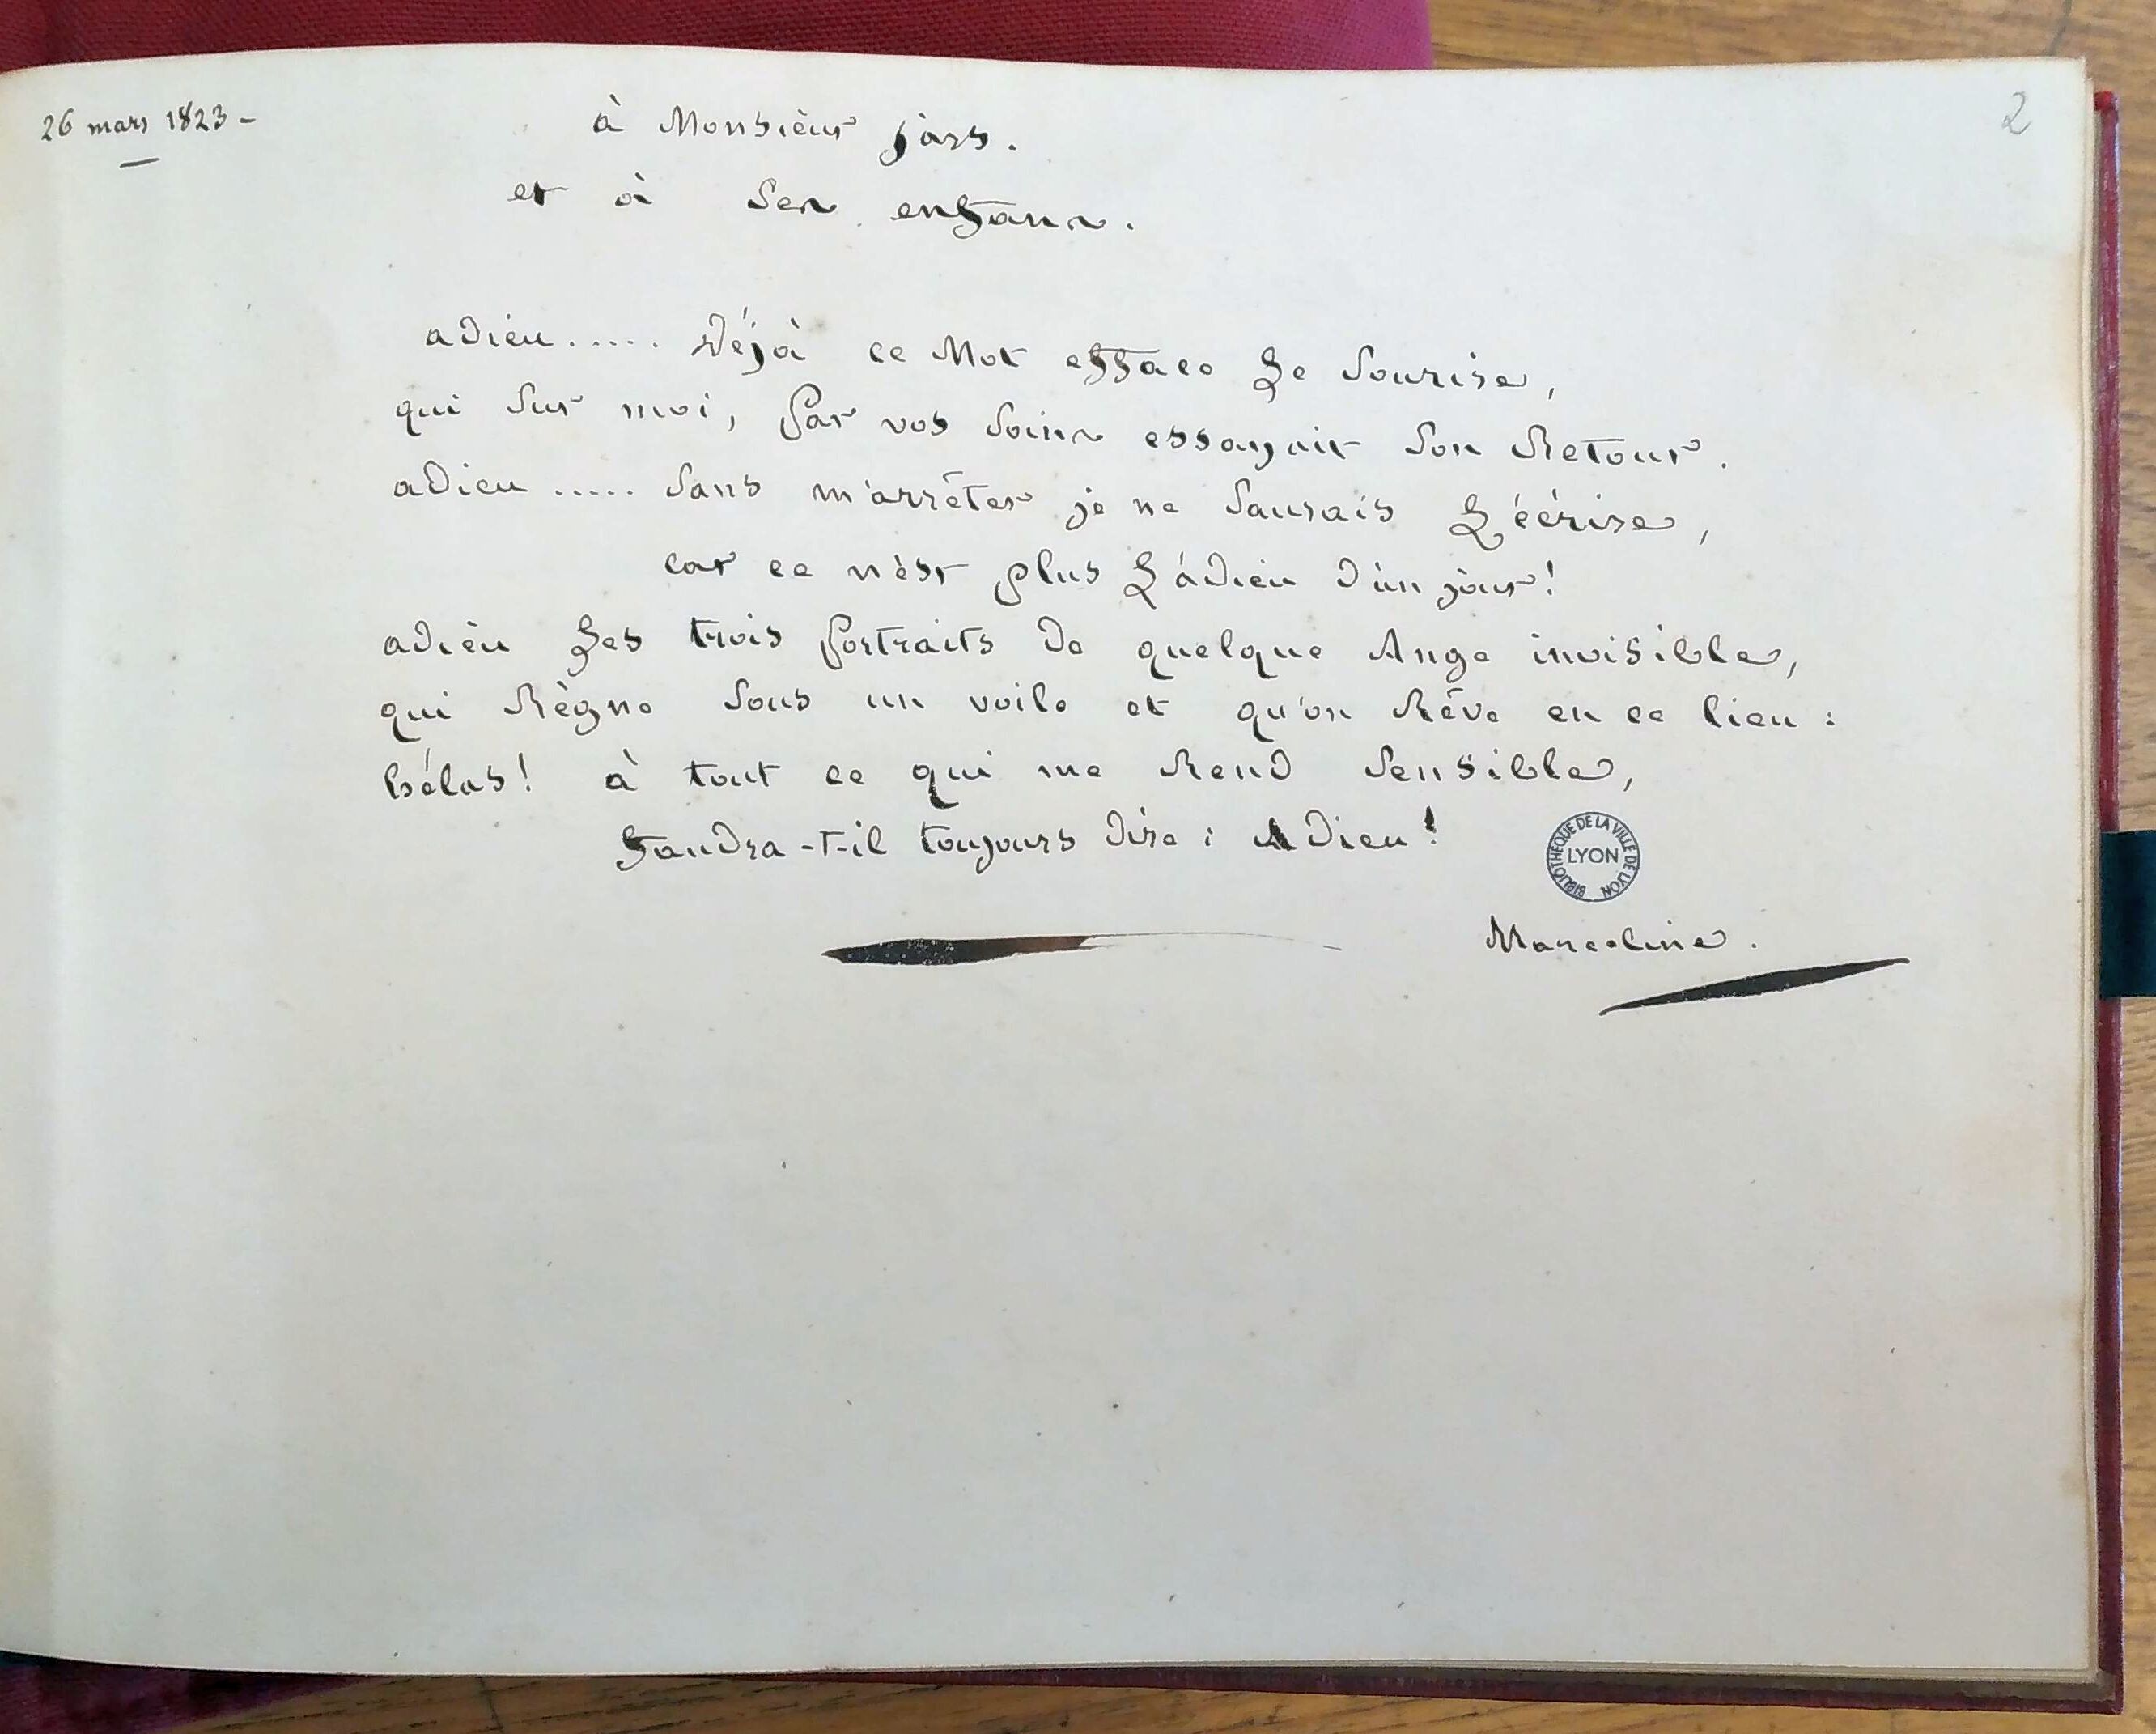 26 mars 1823 -
2
à Monsieur jars.
et à Ses enfans.
adieu..... Déjà ce Mot efface Le Sourire,
qui Sur moi, par vos Soins essayait Son Retour.
adieu..... Sans m'arrêter je ne Saurais L'écrire,
car ce n'est plus L'adieu D'un jour!
adieu Les trois portraits De quelque Ange invisible,
qui Règne Sous un voile et qu'on Rêve en ce lieu :
hélas! à tout ce qui me Rend Sensible,
faudra-t-il toujours Dire : Adieu!
BIBLIOTHEQUE DE LA VILLE DE LYON
LYON
Marceline.